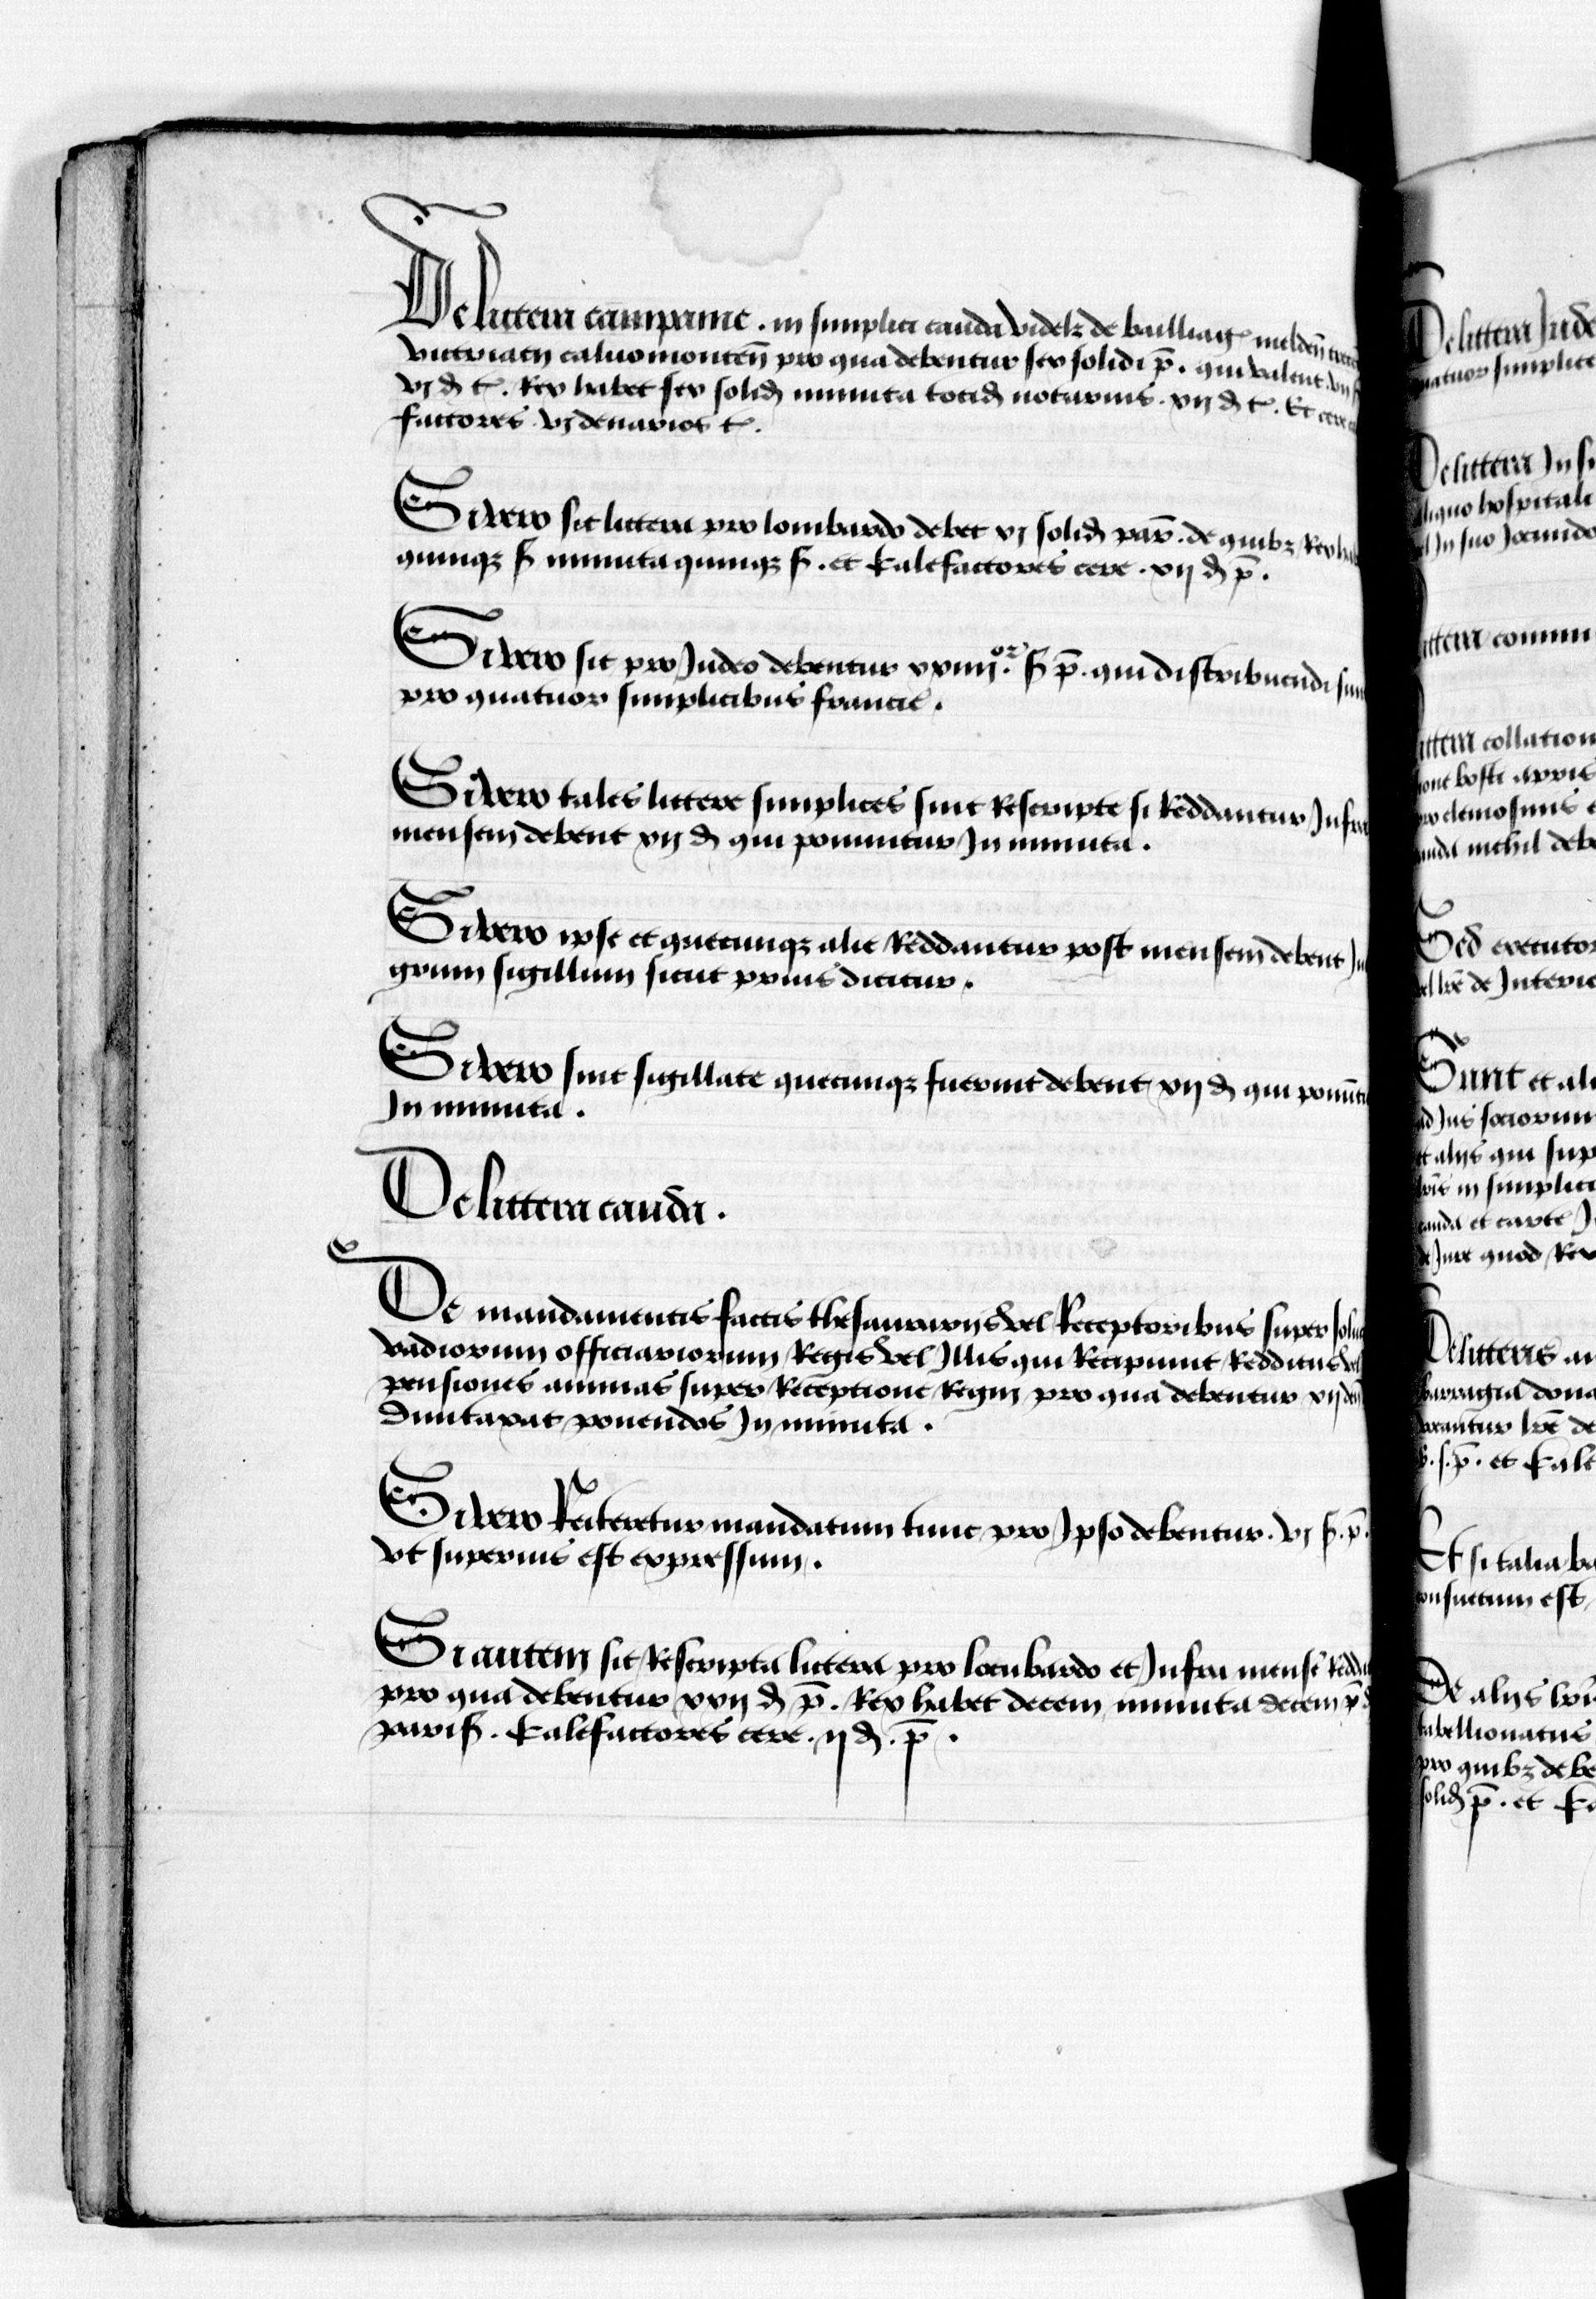 De littera campanie . in simplici cauda videlz de bailliag melden̄ trecen̄
vitriaty caluomonten̄ pro qua debentur sex solidi p̄ . qui valent . vij s
vj d t . Rex habet sex solid minuta totid notarius . xij d t . Et cere
factores . vj denarios t .
Si vero sit littera pro lombardo debet xj solid par̄ . de quibz Rex
quinqz s minuta quinqz s . et kalefactores cere . xij d p̄ .
Si vero sit pro Judeo debentur xxiiij.or s p̄ . qui distribuendi sun
pro quatuor simplicibus francie .
Si vero tales littere simplices sint Rescripte si Reddantur Infra
mensem debent xij d qui ponuntur In minuta .
Si vero ipse et quecunqz alie Reddantur post mensem debent In
grum sigillum sicut prius dicitur .
Si vero sint sigillate quecunqz fuerint debent xij d qui ponūt
In minuta .
De littera cauda .
De mandamentis factis thesaurarijs vel Receptoribus super solu
vadiorum officiariorum Regis vel Illis qui Recipiunt Redditus vel
pensiones annuas super Receptione Regni pro qua debentur xij den
Duntaxat ponendos In minuta .
Si vero Reiteretur mandatum tunc pro Ipso debentur . vj s . p̄ .
vt superius est expressum .
Si autem sit Rescripta littera pro lombardo et Infra mensē Redda
pro qua debentur xxij d p̄ . Rex habet decem minuta decem p̄ d
paris . kalefactores cere . ij d . p̄ .
De littera Jude
quatuor simplice
De littera In si
aliquo hospitali
vel In suo Jocundo
littera commu
littera collation
pro elemosinis
cauda nichil debe
Sed executor
vel lrē de Interio
Sunt et ali
ad Jus sociorum
et alijs qui sup
in simplici
cauda et carte I
de Jure quod Rex
De litteris an
barragia dona
lrē de
s . p̄ . et kale
Et si talia ba
consuetum est
De alijs
tabellionatus
pro quibz debe
solid p̄ . et ka